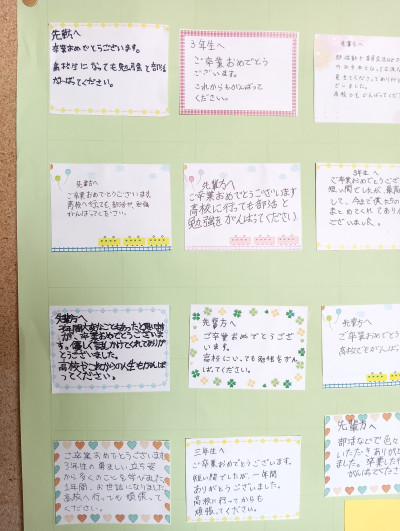 先輩へ
卒業おめでとうございます。
高校生になっても勉強と部活
がんばってください。
3年生へ
ご卒業おめでとう
ございます。
これからもがんばって
ください。
先輩方へ
先輩方へ
ご卒業おめでとうございます。
高校へ行っても、部活や、勉強
がんばってください。
先輩方へ
ご卒業おめでとうございます
高校に行っても部活と
勉強をがんばってください
3年生へ
ご卒業おめでとうござ
短い間でしたが、最高
して、今まで僕たちの
まとめてくれてありが
ございました。
先輩方へ
が、卒業おめでとうございま
す。優しく話しかけてくれてありが
とうございました。
高校やこれからの人生もがんば
ってください。
先輩方へ
ご卒業おめでとうござ
います。
高校にいっても勉強をがん
ばってください。
先輩方へ
ご卒業おめでとう
高校でもがんば
ご卒業おめでとうございます。
3年生の勇ましい立ち姿
から多くのことを学びました。
1年間、お世話になりました。
高校へ行っても頑張って
ください。
三年生へ
ご卒業おめでとうございます。
短い間でしたが、一年間
ありがとうございました。
高校に行ってからも
頑張ってください。
先輩方へ
部活などで色々
いただきありが
ました。卒業した
がんばってください